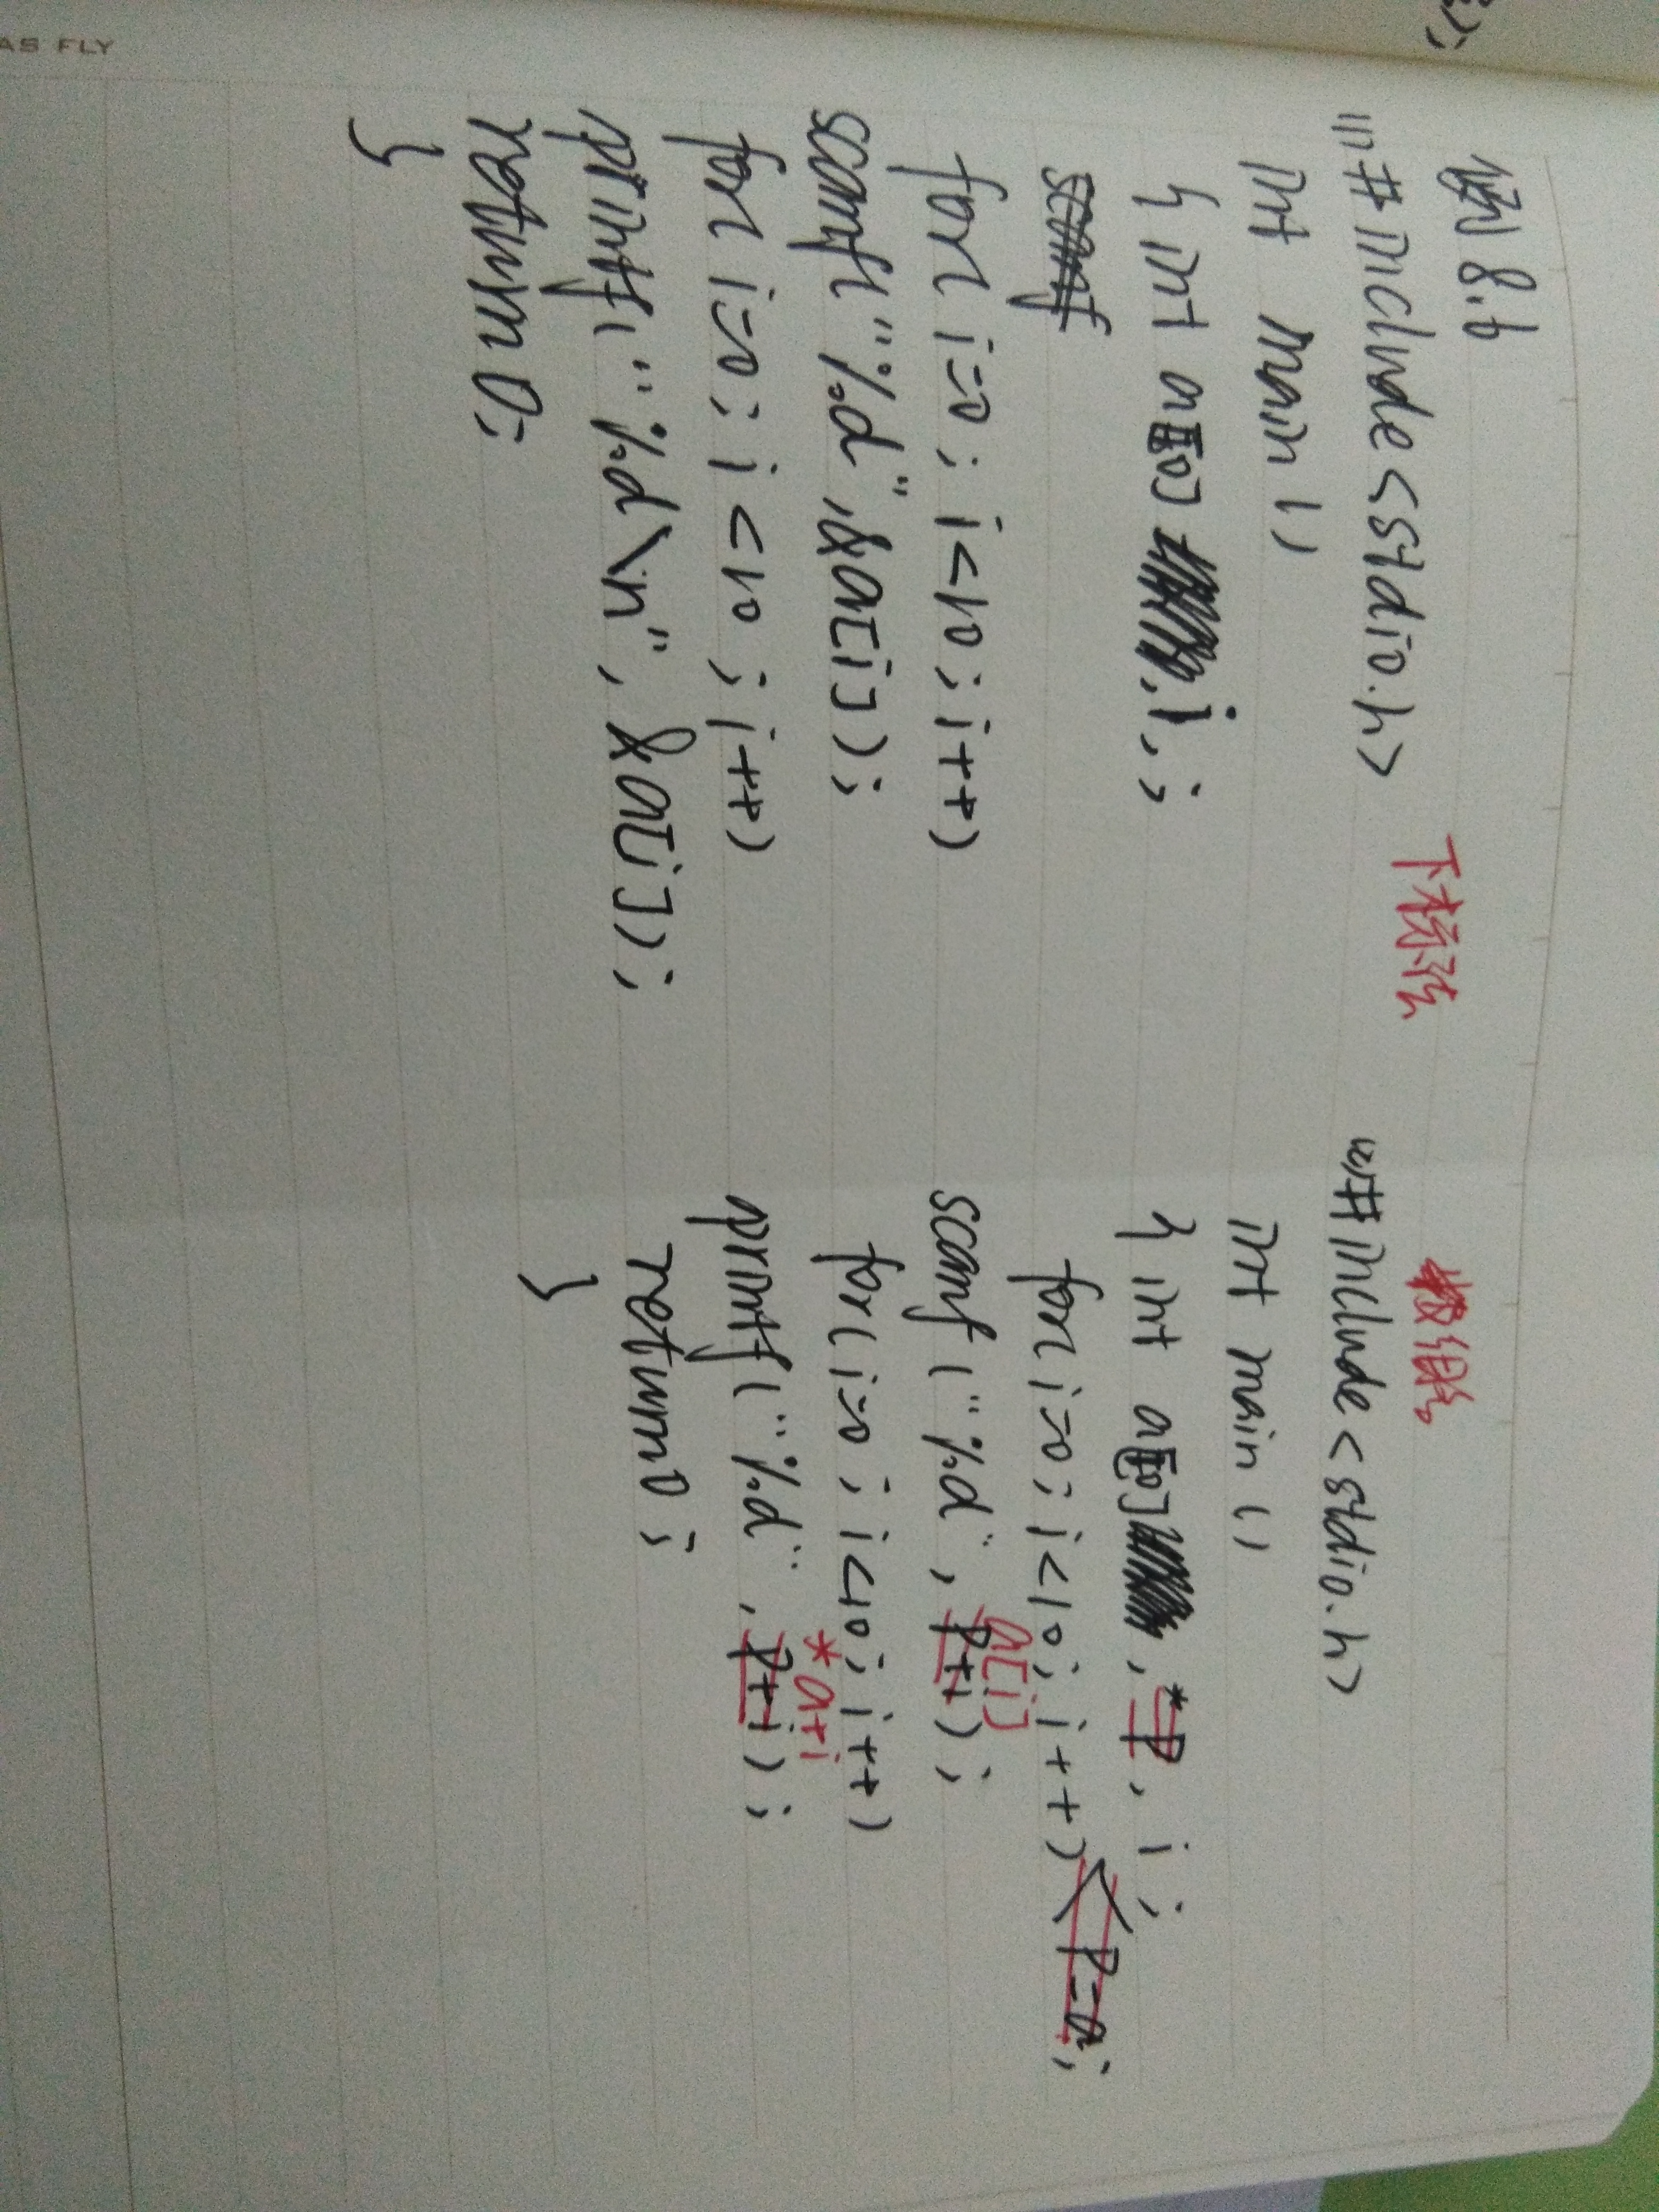 例8.6
(1)#include<stdio.h> 下标法
int main()
{ int a[10] i,;
scanf
for(i=0;i<10;i++)
scanf("%d",&a[i]);
for(i=0;i<10;i++)
printf("%d\n",&a[i]);
return 0;
}
数组名
(2)#include<stdio.h>
int main()
{ int a[10],*p,i;
p=a;
for(i=0;i<10;i++)
a[i]
scanf("%d",p+i);
for(i=0;i<10;i++)
*a+i
printf("%d",p+i);
return 0;
}
AS FLY